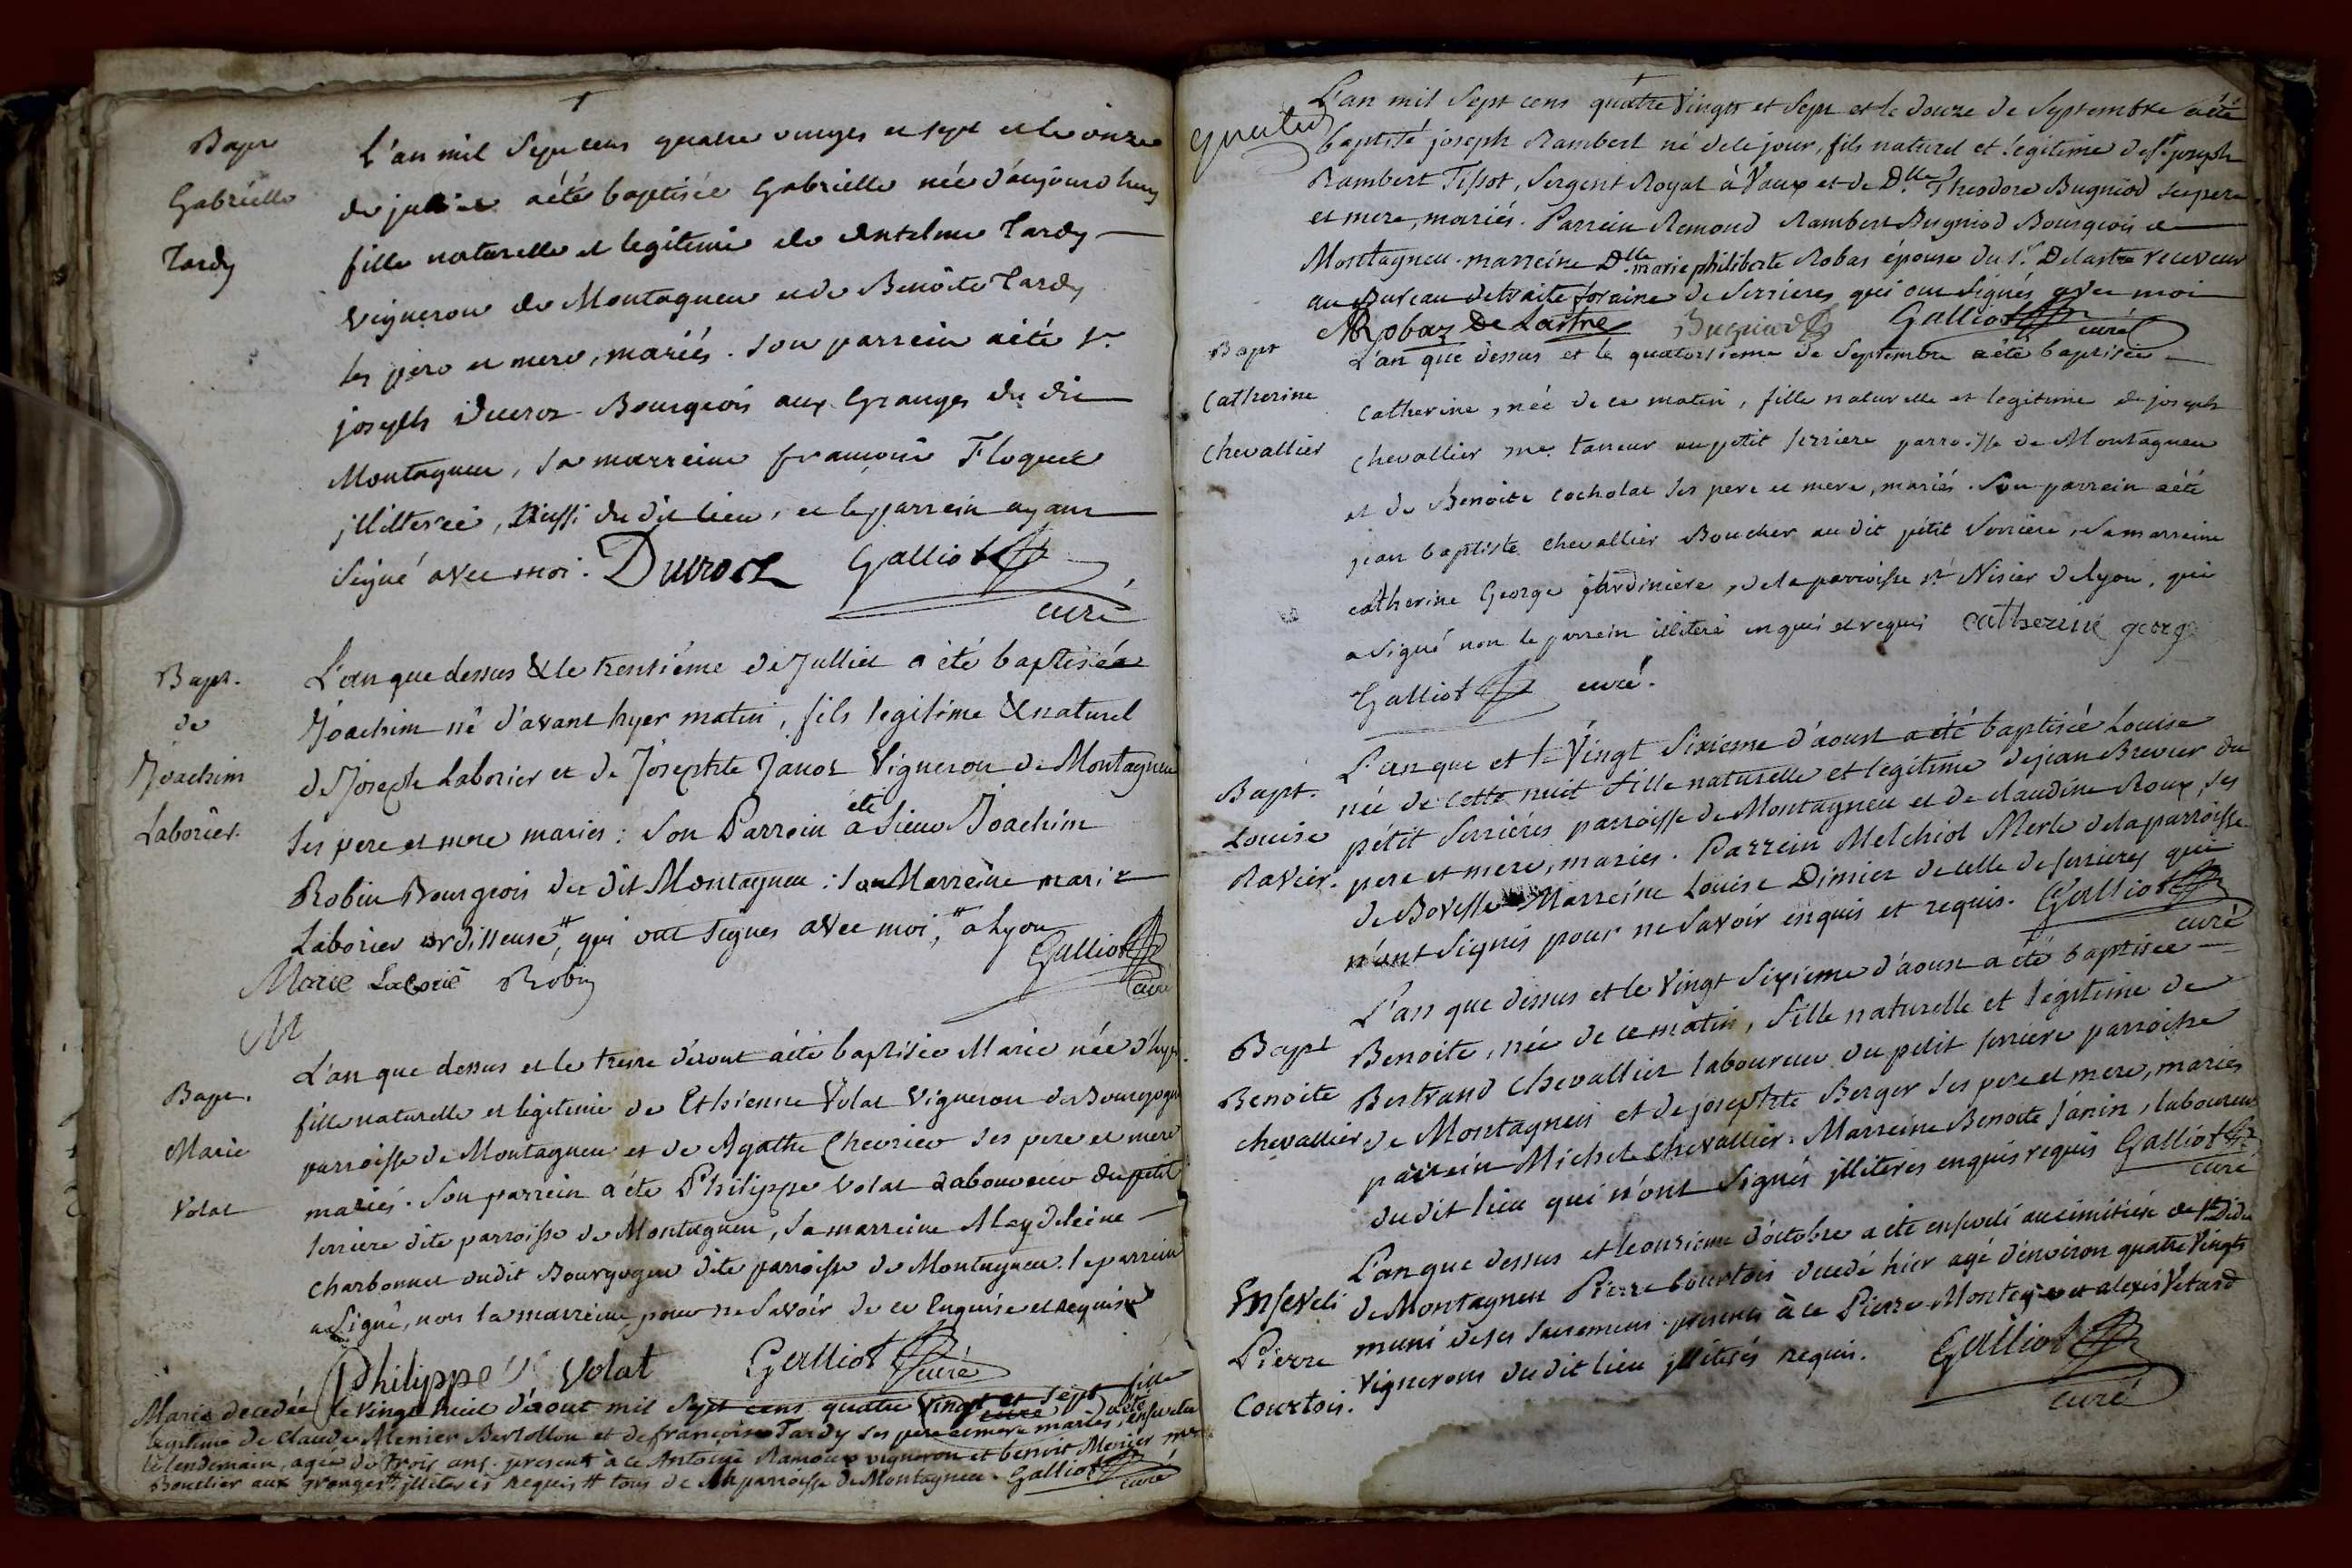 Bapt
Gabrielle
Tardy
L'an mil sept cens quatre vingts et sept et le onze
de juillet a été baptisée Gabrielle née d'aujourdhuy
fille naturelle et legitime de Antelme Tardy
vigneron de Montagneu et de Benoite Tardy
ses pere et mere, mariés. Son parrein a été Sr.
joseph Ducroz Bourgeois aux Granges du dit
Montagneu, sa marreine françoise Floquet
jllitterée, Aussi du dit lieu, et le parrein ayant
signé avec moi. Ducrocz Galliot
curé
Bapt.
de
Joachim
Laborier.
L'an que dessus & le trentiéme de Julliet a été baptisée
Joachim né d'avant hyer matin, fils legitime & naturel
de Joseph Laborier et de Josephte Janoz Vigneron de Montagneu
ses pere et mere mariés : son Parrein a été Sieur Joachim
Robin Bourgeois du dit Montagneu : sa Marreine marie
Laborier ordisseuse,# qui ont signes avec moi, # a Lyon
Galliot
Marie Laborié Robin
curé
L'an que dessus et le treize d'aout a été baptisée Marie née d'hyer.
Bapt.
Marie
Volat
fille naturelle et legitime de Ethienne Volat Vigneron de Bourgogne
parroisse de Montagneu et de Agathe Chevrier ses pere et mere
mariés. Son parrein a été Philippe Volat Laboureur du petit
serriere dite parroisse de Montagneu, sa marreine Magdeleine
Charbonnet dudit Bourgogne dite parroisse de Montagneu. le parrein
a signé, non la marreine pour ne savoir de ce Enquise et requise
Philippe Volat Galliot
curé
Marie decedée le vingt huit d'aout mil sept cens quatre vingt et sept fille
legitime de Claude Menier Bertollon et de françoise Tardy ses pere et mere mariés, a été ensevelie
le lendemain, agée de trois ans. present à ce Antoine Ramoux vigneron et benoit Menier
Boutlier aux granges # jlliterés requis # tous de la parroisse de Montagneu. Galliot
curé
L'an mil sept cens quatre vingts et sept et le douze de septembre a été
baptisé joseph Rambert né de le jour, fils naturel et legitime de Sr. joseph
Rambert Tissot, sergent Royal à Vaux et de Dlle. Theodore Bugniod ses pere
et mere, mariés. Parrein Remond Rambert Bugniod Bourgeois de
Montagneu. marreine Dlle. marie philiberte Robas épouse du Sr. Delastre receveur
au Bureau de traite foraine de serrieres qui ont signés avec moi
M Robaz De Lastre Bugniod Galliot curé
Bapt
Catherine
Chevallier
L'an que dessus et le quatorsieme de septembre a été baptisée
Catherine, née de ce matin, fille naturelle et legitime de joseph
Chevallier me. tanneur au petit serriere parroisse de Montagneu
et de Benoite Cocholat ses pere et mere, mariés. Son parrein a été
jean baptiste Chevallier Boucher au dit petit serriere, sa marreine
catherine George jardiniere, de la parroisse St. Nisier de lyon, qui
a signé non le parrein illiteré enquis et requis catherine george
Galliot curé.
Bapt.
Louise
Ravier.
L'an que et le Vingt sixieme d'aoust a été baptisée Louise
née de cette nuit fille naturelle et legitime de jean Brevier du
pétit serriéres parroisse de Montagneu et de claudine Roux, ses
pere et mere, mariés. Parrein Melchiot Merle de la parroisse
de Bovesse Marreine Louise Dimier de celle de serrieres qui
n'ont signés pour ne savoir enquis et requis. Galliot
curé
Bapt
Benoite
chevallier
L'an que dessus et le Vingt sixieme d'aoust a été baptisée
Benoite, née de ce matin, fille naturelle et légitime de
Bertrand Chevallier laboureur du petit serriere parroisse
de Montagneu et de josephte Berger ses pere et mere, mariés
parrein Michel Chevallier. Marreine Benoite Janin, laboureur
dudit lieu qui n'ont signés jlliterés enquis requis Galliot
curé
Enseveli
Pierre
Courtois.
L'an que dessus et le onsieme d'octobre a été enseveli au cimitiere de St Didi
de Montagneu Pierre Courtois decedé hier agé d'environ quatre Vingts
muni de ses sacremens. presents à ce Pierre Montagnet alexis Vetard
vignerons dudit lieu jlliterés requis. Galliot
curé